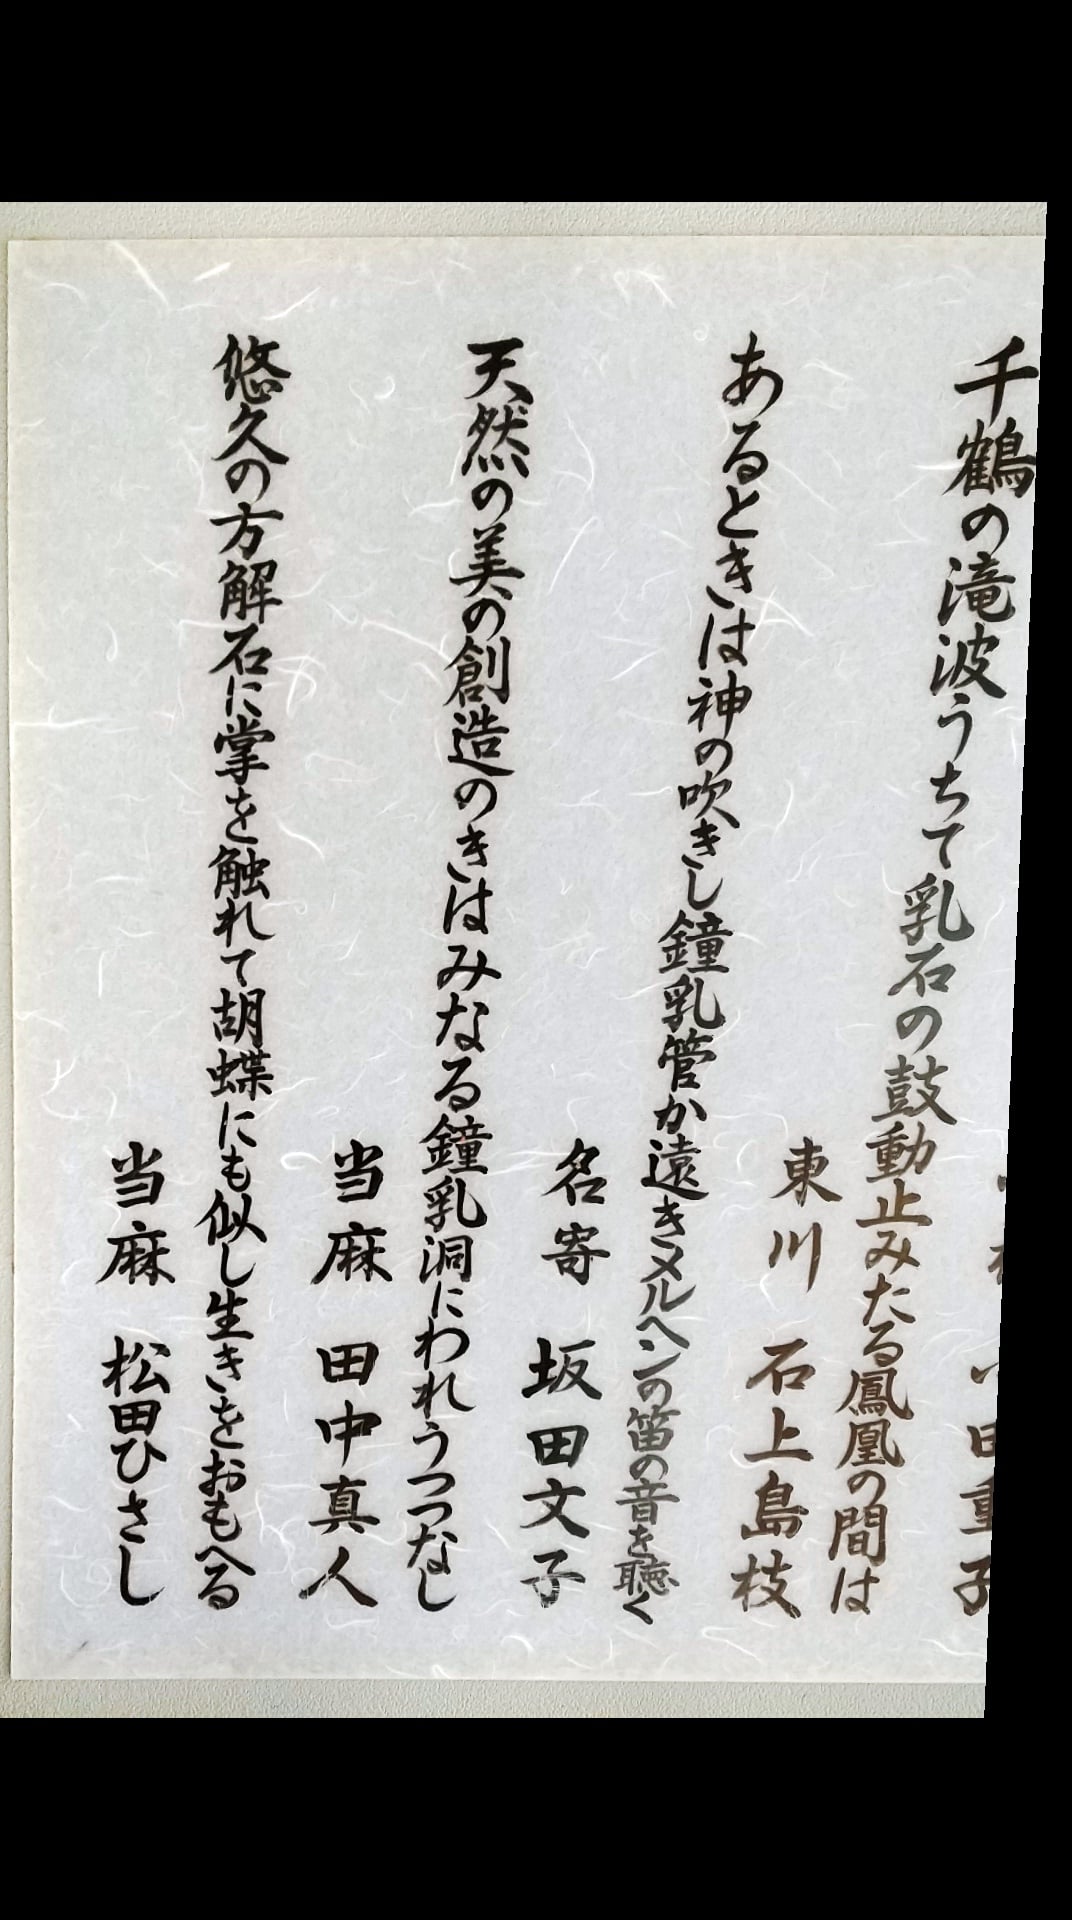 千鶴の滝波うちて乳石の鼓動止みたる鳳凰の間は
東川 石上島枝
あるときは神の吹きし鐘乳管か遠きメルヘンの笛の音を聴く
名寄 坂田文子
天然の美の創造のきはみなる鐘乳洞にわれうつつなし
当麻 田中真人
悠久の方解石に掌を触れて胡蝶にも似し生きをおもへる
当麻 松田ひさし